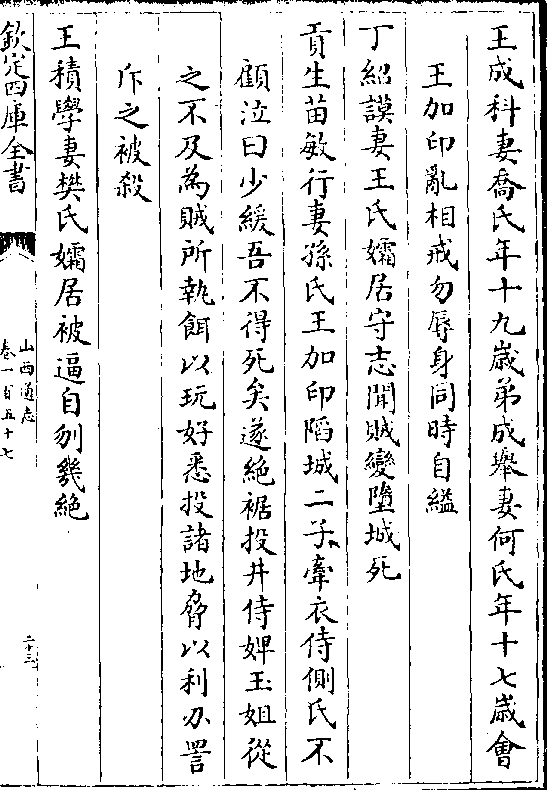 王成科妻喬氏年十九歳弟成舉妻何氏年十七歳會
王加印亂相戒勿辱身同時自縊
丁紹謨妻王氏孀居守志聞賊變墮城死
貢生苗敏行妻孫氏王加印䧟城二子牽衣侍側氏不
顧泣曰少緩吾不得死矣遂絶裾投井侍婢玉姐從
之不及為賊所執餌以玩好悉投諸地脅以利刃詈
斥之被殺
王積學妻樊氏孀居被逼自刎幾絶
欽定四庫全書
山西通志
卷一百五十七
二十三